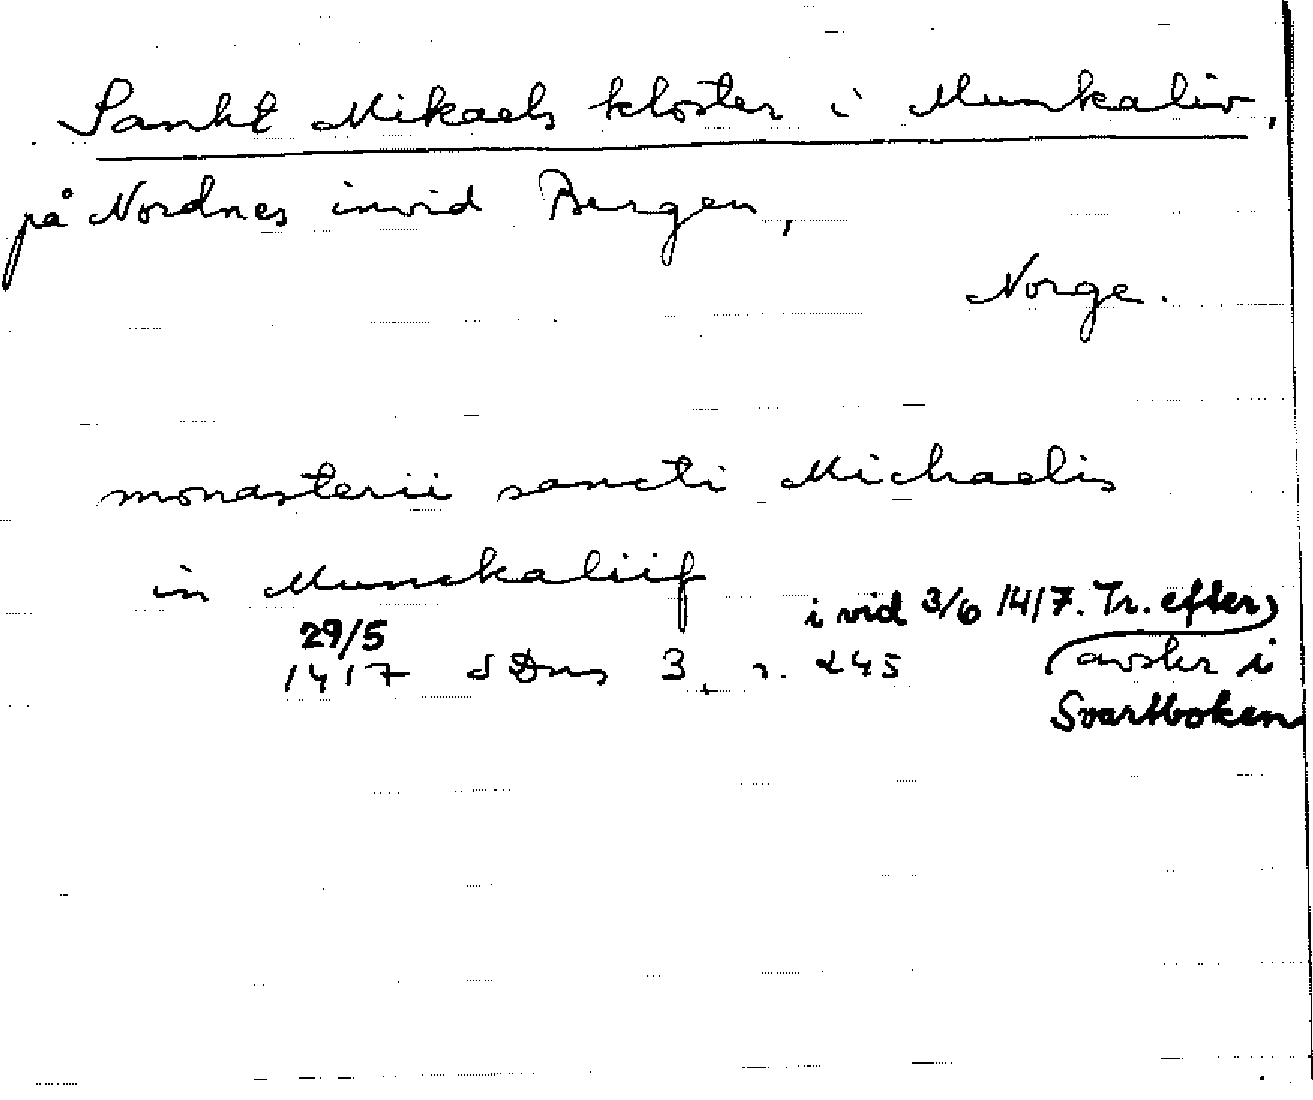 Sankt Mikaels kloster i Munkaliv,
på Nordnes invid Bergen,
Norge.
monasterii sancti Michaelis
in Munckaliif
29/5
1417 SDns 3, s. 245
i vid 3/6 1417. Tr. efter
avskr i
Svartboken